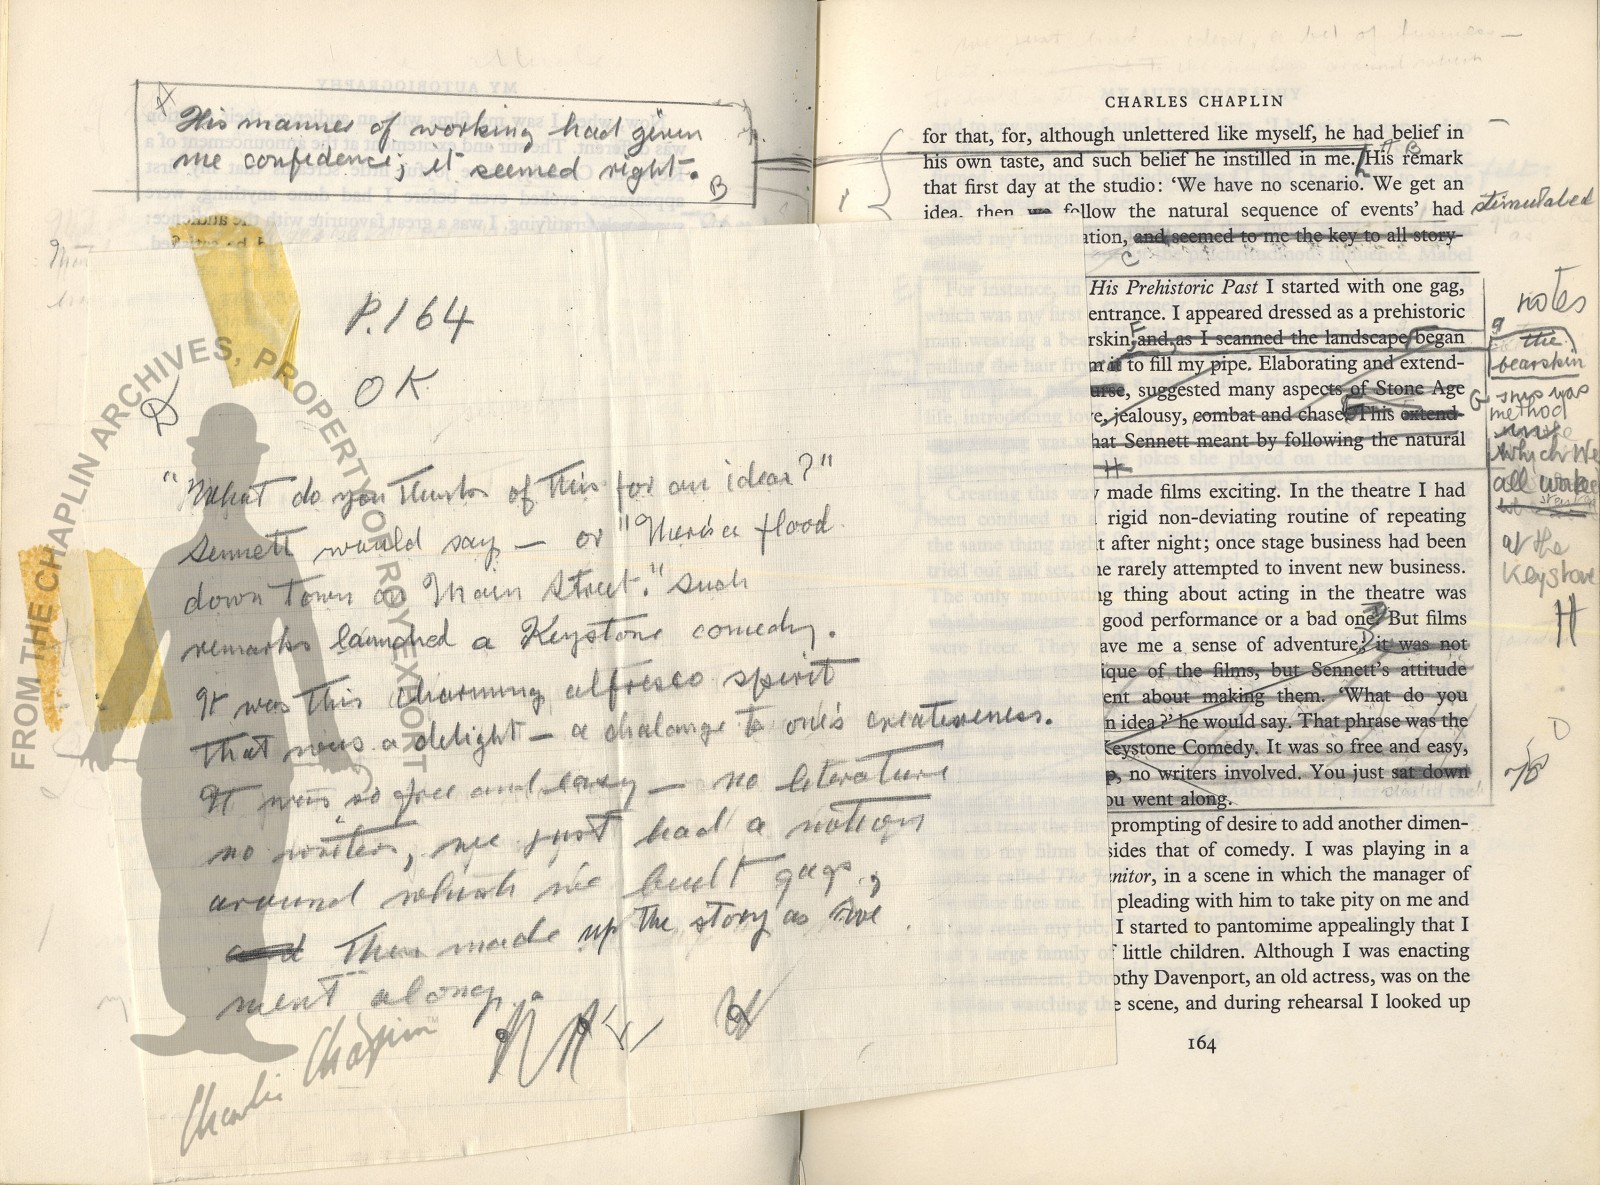 His manner of working had given
me confidence; it seemed right.
B
P.164
OK
D
"What do you think of this for an idea?"
Sennett would say — or "There's a flood
down town on Main Street." Such
remarks launched a Keystone comedy.
It was this charming alfresco spirit
that was a delight — a chalange to one's creativeness.
It was so free and easy — no literature
no writers, we just had a notion
around which we built gags,
and then made up the story as we
went along.
Charlie Chaplin
FROM THE CHAPLIN ARCHIVES, PROPERTY OF ROY EXPORT
MY AUTOBIOGRAPHY
CHARLES CHAPLIN
for that, for, although unlettered like myself, he had belief in
his own taste, and such belief he instilled in me. His remark
that first day at the studio: 'We have no scenario. We get an
idea, then we follow the natural sequence of events' had
stimulated
ation, and seemed to me the key to all story-
C
His Prehistoric Past I started with one gag,
entrance. I appeared dressed as a prehistoric
rskin, and, as I scanned the landscape, began
m it to fill my pipe. Elaborating and extend-
urse, suggested many aspects of Stone Age
e, jealousy, combat and chase. This extend-
hat Sennett meant by following the natural
H
notes
the
bearskin
G
this was
method
which we
all worked
at the
Keystone
H
y made films exciting. In the theatre I had
rigid non-deviating routine of repeating
t after night; once stage business had been
he rarely attempted to invent new business.
g thing about acting in the theatre was
good performance or a bad one. But films
ave me a sense of adventure, it was not
ique of the films, but Sennett's attitude
ent about making them. 'What do you
n idea?' he would say. That phrase was the
Keystone Comedy. It was so free and easy,
p, no writers involved. You just sat down
ou went along.
D
prompting of desire to add another dimen-
sides that of comedy. I was playing in a
nitor, in a scene in which the manager of
pleading with him to take pity on me and
I started to pantomime appealingly that I
f little children. Although I was enacting
othy Davenport, an old actress, was on the
e scene, and during rehearsal I looked up
164